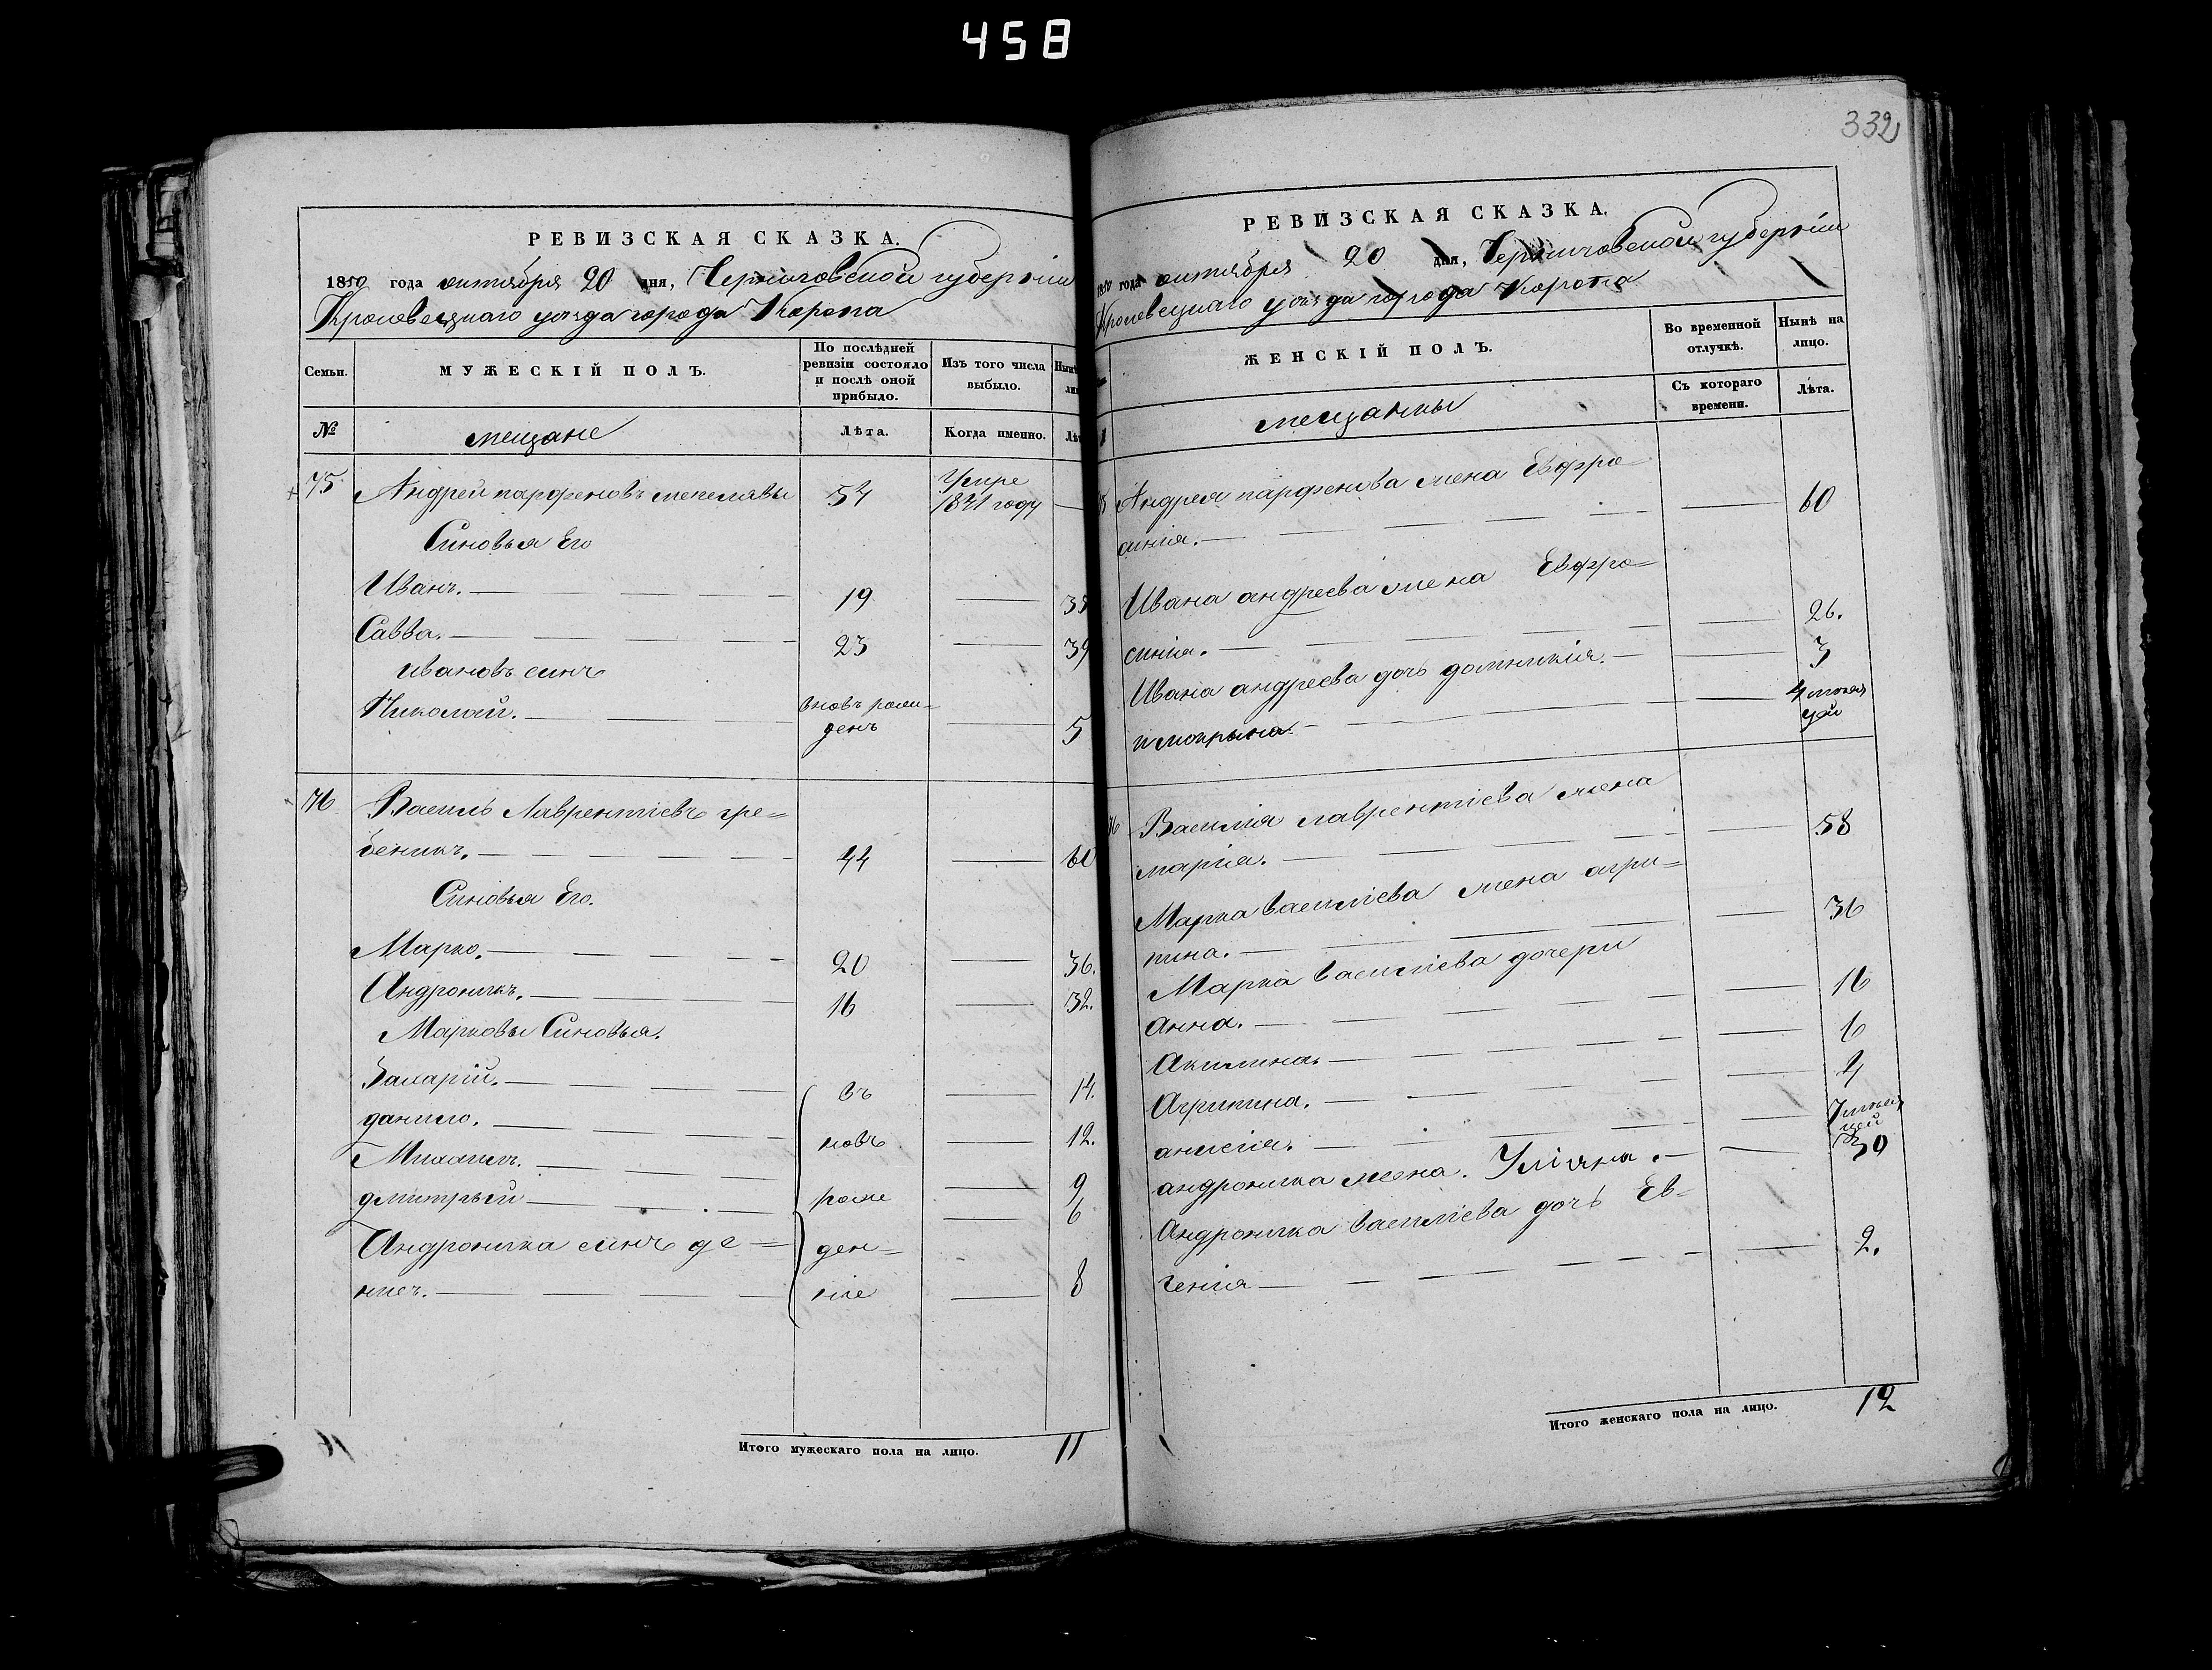 458
РЕВИЗСКАЯ СКАЗКА.
1850 года октября 20 дня, Черниговской губерніи
Кролевецкаго уѣзда города Коропа
Семьи.
МУЖЕСКІЙ ПОЛЪ.
По послѣдней ревизіи состояло и послѣ оной прибыло.
Изъ того числа выбыло.
№
мещане
Лѣта.
Когда именно.
75 Андрей парфеновъ 54 Умре 1841 году
Синовья Его
Иванъ. 19 35
Савва. 23 39
ивановъ синъ
Николай. вновь рожденъ 5
76 Василь Лаврентіевъ гре=
беникъ. 44 60
Синовья Его.
Марко. 20 36.
Андроникъ. 16 32.
Марковы Синовья.
Захарій. въ 14.
данило. новъ 12.
Михаилъ. 9
дмитрый рож 6
Андроника синъ де=
нисъ. ден=ніе 8
Итого мужескаго пола на лицо. 11
332
РЕВИЗСКАЯ СКАЗКА.
1850 года октября 20 дня, Черниговской губерніи
Кролевецкаго уѣзда города Коропа
ЖЕНСКІЙ ПОЛЪ.
Во временной отлучкѣ.
Нынѣ на лицо.
мещанкы
Съ котораго времени.
Лѣта.
Андрея парфенова жена Евфро=
синія. 60
Ивана андреева жена Евфро=
синия. 26.
Ивана андреева дочь домникія. 3
и мокрына 4 месяцей
Василия лаврентіева жена
мария. 58
Марка василіева жена агри=
пина. 36
Марка василіева дочери
анна. 16
Акилина. 6
Агрипина. 4
анисия. 7 месяцей
андроника жена. Уліяна. 30
Андроника василіева дочь Ев=
гения 2.
Итого женскаго пола на лицо. 12